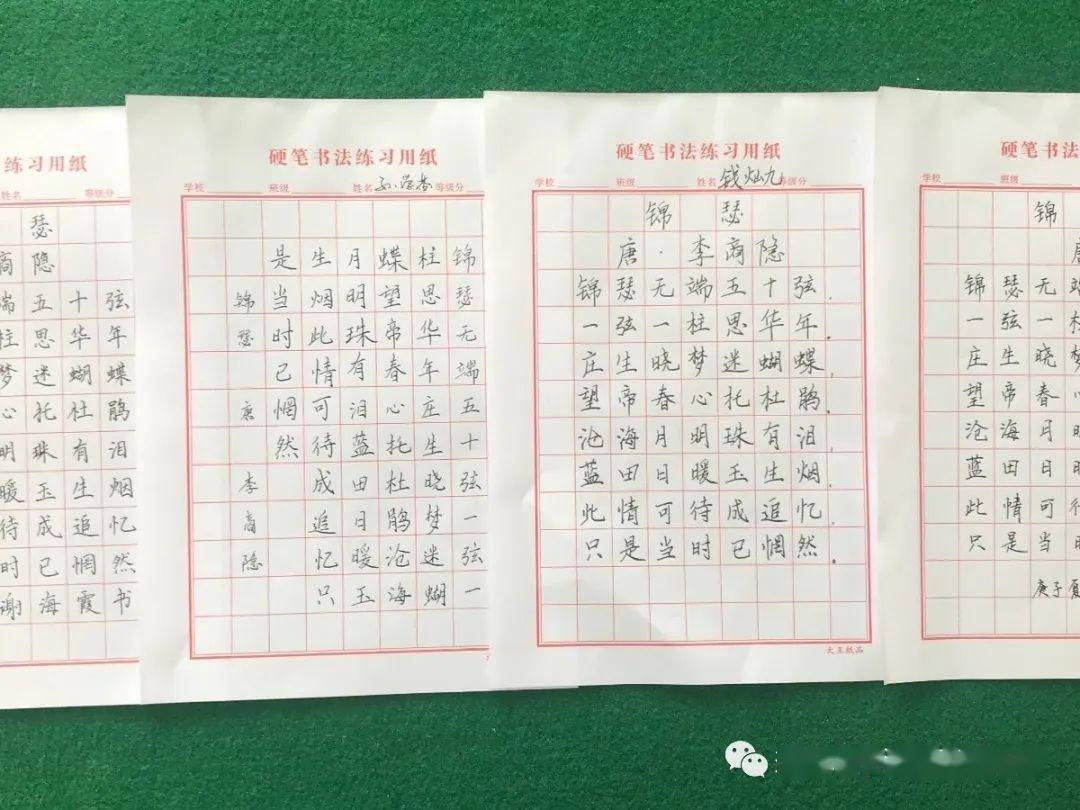 练习用纸
姓名 等级分
瑟
商隐
端五十弦
柱思华年
梦迷蝴蝶
心托杜鹃
明珠有泪
暖玉生烟
待成追忆
时已惘然
谢海霞书
硬笔书法练习用纸
学校 班级 姓名 等级分
锦瑟无端五十弦一弦一
柱思华年庄生晓梦迷蝴
蝶望帝春心托杜鹃沧海
月明珠有泪蓝田日暖玉
生烟此情可待成追忆只
是当时已惘然
锦瑟 唐 李商隐
硬笔书法练习用纸
学校 班级 姓名 钱灿九 等级分
锦 瑟
唐·李商隐
锦瑟无端五十弦.
一弦一柱思华年.
庄生晓梦迷蝴蝶.
望帝春心托杜鹃.
沧海月明珠有泪.
蓝田日暖玉生烟.
此情可待成追忆.
只是当时已惘然.
大五纸品
硬笔书法
学校 班级
锦
锦瑟无端
一弦一柱
庄生晓梦
望帝春心
沧海月明
蓝田日暖
此情可待
只是当时
庚子夏